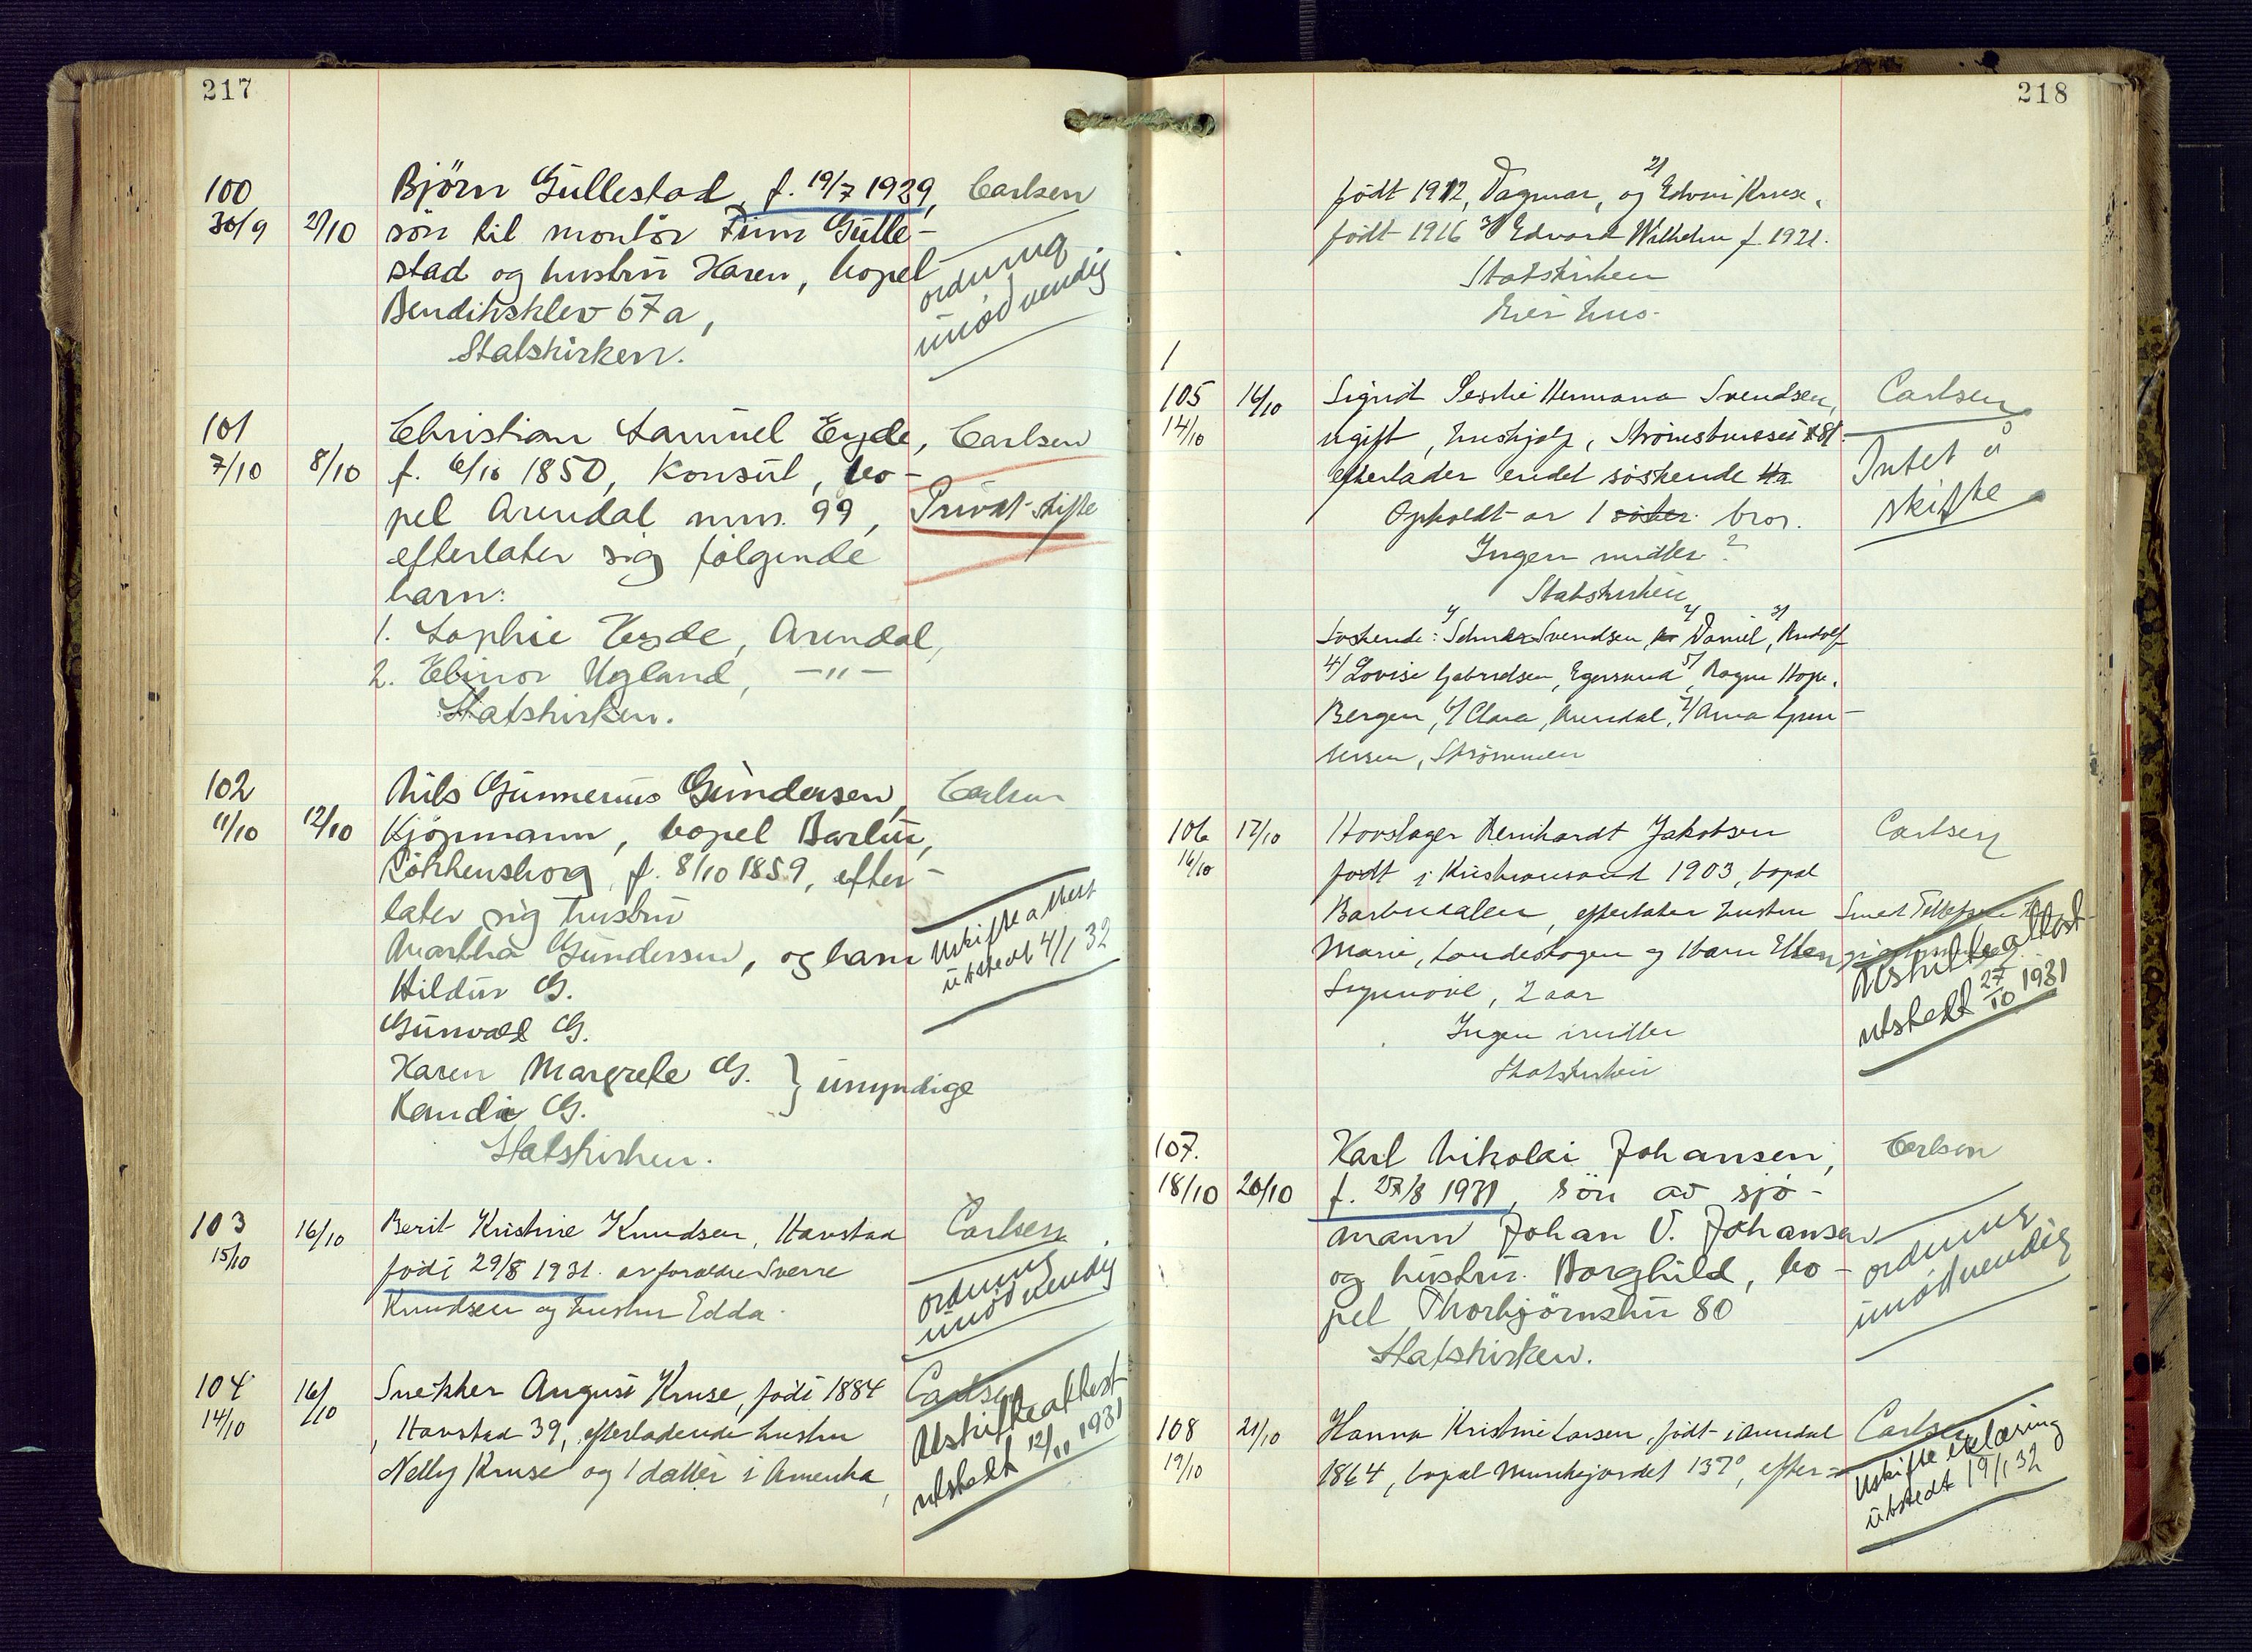 217
100
30/9 2/10
Björn Gullestad, f. 19/7 1929, Carlsen
sön til montör Finn Gulle-
stad og hustru Karen, bopel
Bendiksklev 67a,
Statskirken.
ordning
unødvendig
101
7/10 8/10
Christian Samuel Eyde, Carlsen
f. 6/10 1850, Konsul, bo-
pel Arendal mnr. 99, Privat skifte
efterlater sig følgende
barn:
1. Sophie Eyde, Arendal,
2. Elinor Ugland, -"-
Statskirken.
102
11/10 12/10
Nils Gunnerius Gundersen, Carlsen
Kjöpmann, bopel Barbu,
f. 8/10 1859, efter-
later sig hustru
Martha Gundersen, og barn
Hildur G.
Gunvald G.
Karen Margrete G. } umyndige
Randi G.
Statskirken.
Uskifteattest
utstedt 4/1 32
103 16/10
15/10
Berit Kristine Knudsen, Havstad Carlsen
född 29/8 1931. av foreldre Sverre
Knudsen og hustru Edda.
ordning
unødvendig
104 16/10
14/10
Snekker August Kruse, född 1884 Carlsen
, Havstad 39, efterladende hustru
Nelly Kruse og 1 datter i Amerika,
Uskifteattest
utstedt 12/11 1931
218
født 1912, Dagmar, og 2/ Edvin Kruse,
født 1916 3/ Edvard Wilhelm f. 1921.
Statskirken
Eier hus.
105 16/10
14/10
Sigrid Hermana Svendsen, Carlsen
ugift, hushjelp, Strømsbusset 81.
efterlader endel søskende
Opholdt av 1 bror.
Ingen midler?
Statskirken
Intet å
skifte
Søskende: 1/ Svendsen, 2/ Daniel, 3/ Rudolf
4/ Lovise Gabrielsen, Egersund, 5/ Ragna Hope,
Bergen, 6/ Clara, Arendal, 7/ Anna
Strømmen
106 17/10
16/10
Hovslager Reinhardt Jakobsen Carlsen
født i Kristiansand 1903, bopel
Barbudalen, efterlater hustru
Marie, Landeskogen og 1 barn Ellen
Synnøve, 2 aar
Ingen midler
Statskirken
Uskifteattest
utstedt 27/10 1931
107.
18/10 20/10
Karl Nikolai Johansen, Carlsen
f. 27/8 1931, sön av sjö-
mann Johan V. Johansen
og hustru Borghild, bo-
pel Thorbjörnsbu 80
Statskirken.
ordning
unødvendig
108 21/10
19/10
Hanna Kristine Larsen, født i Arendal Carlsen
1864, bopel Munkejordet 137, efter-
Uskifteerklæring
utstedt 19/1 32